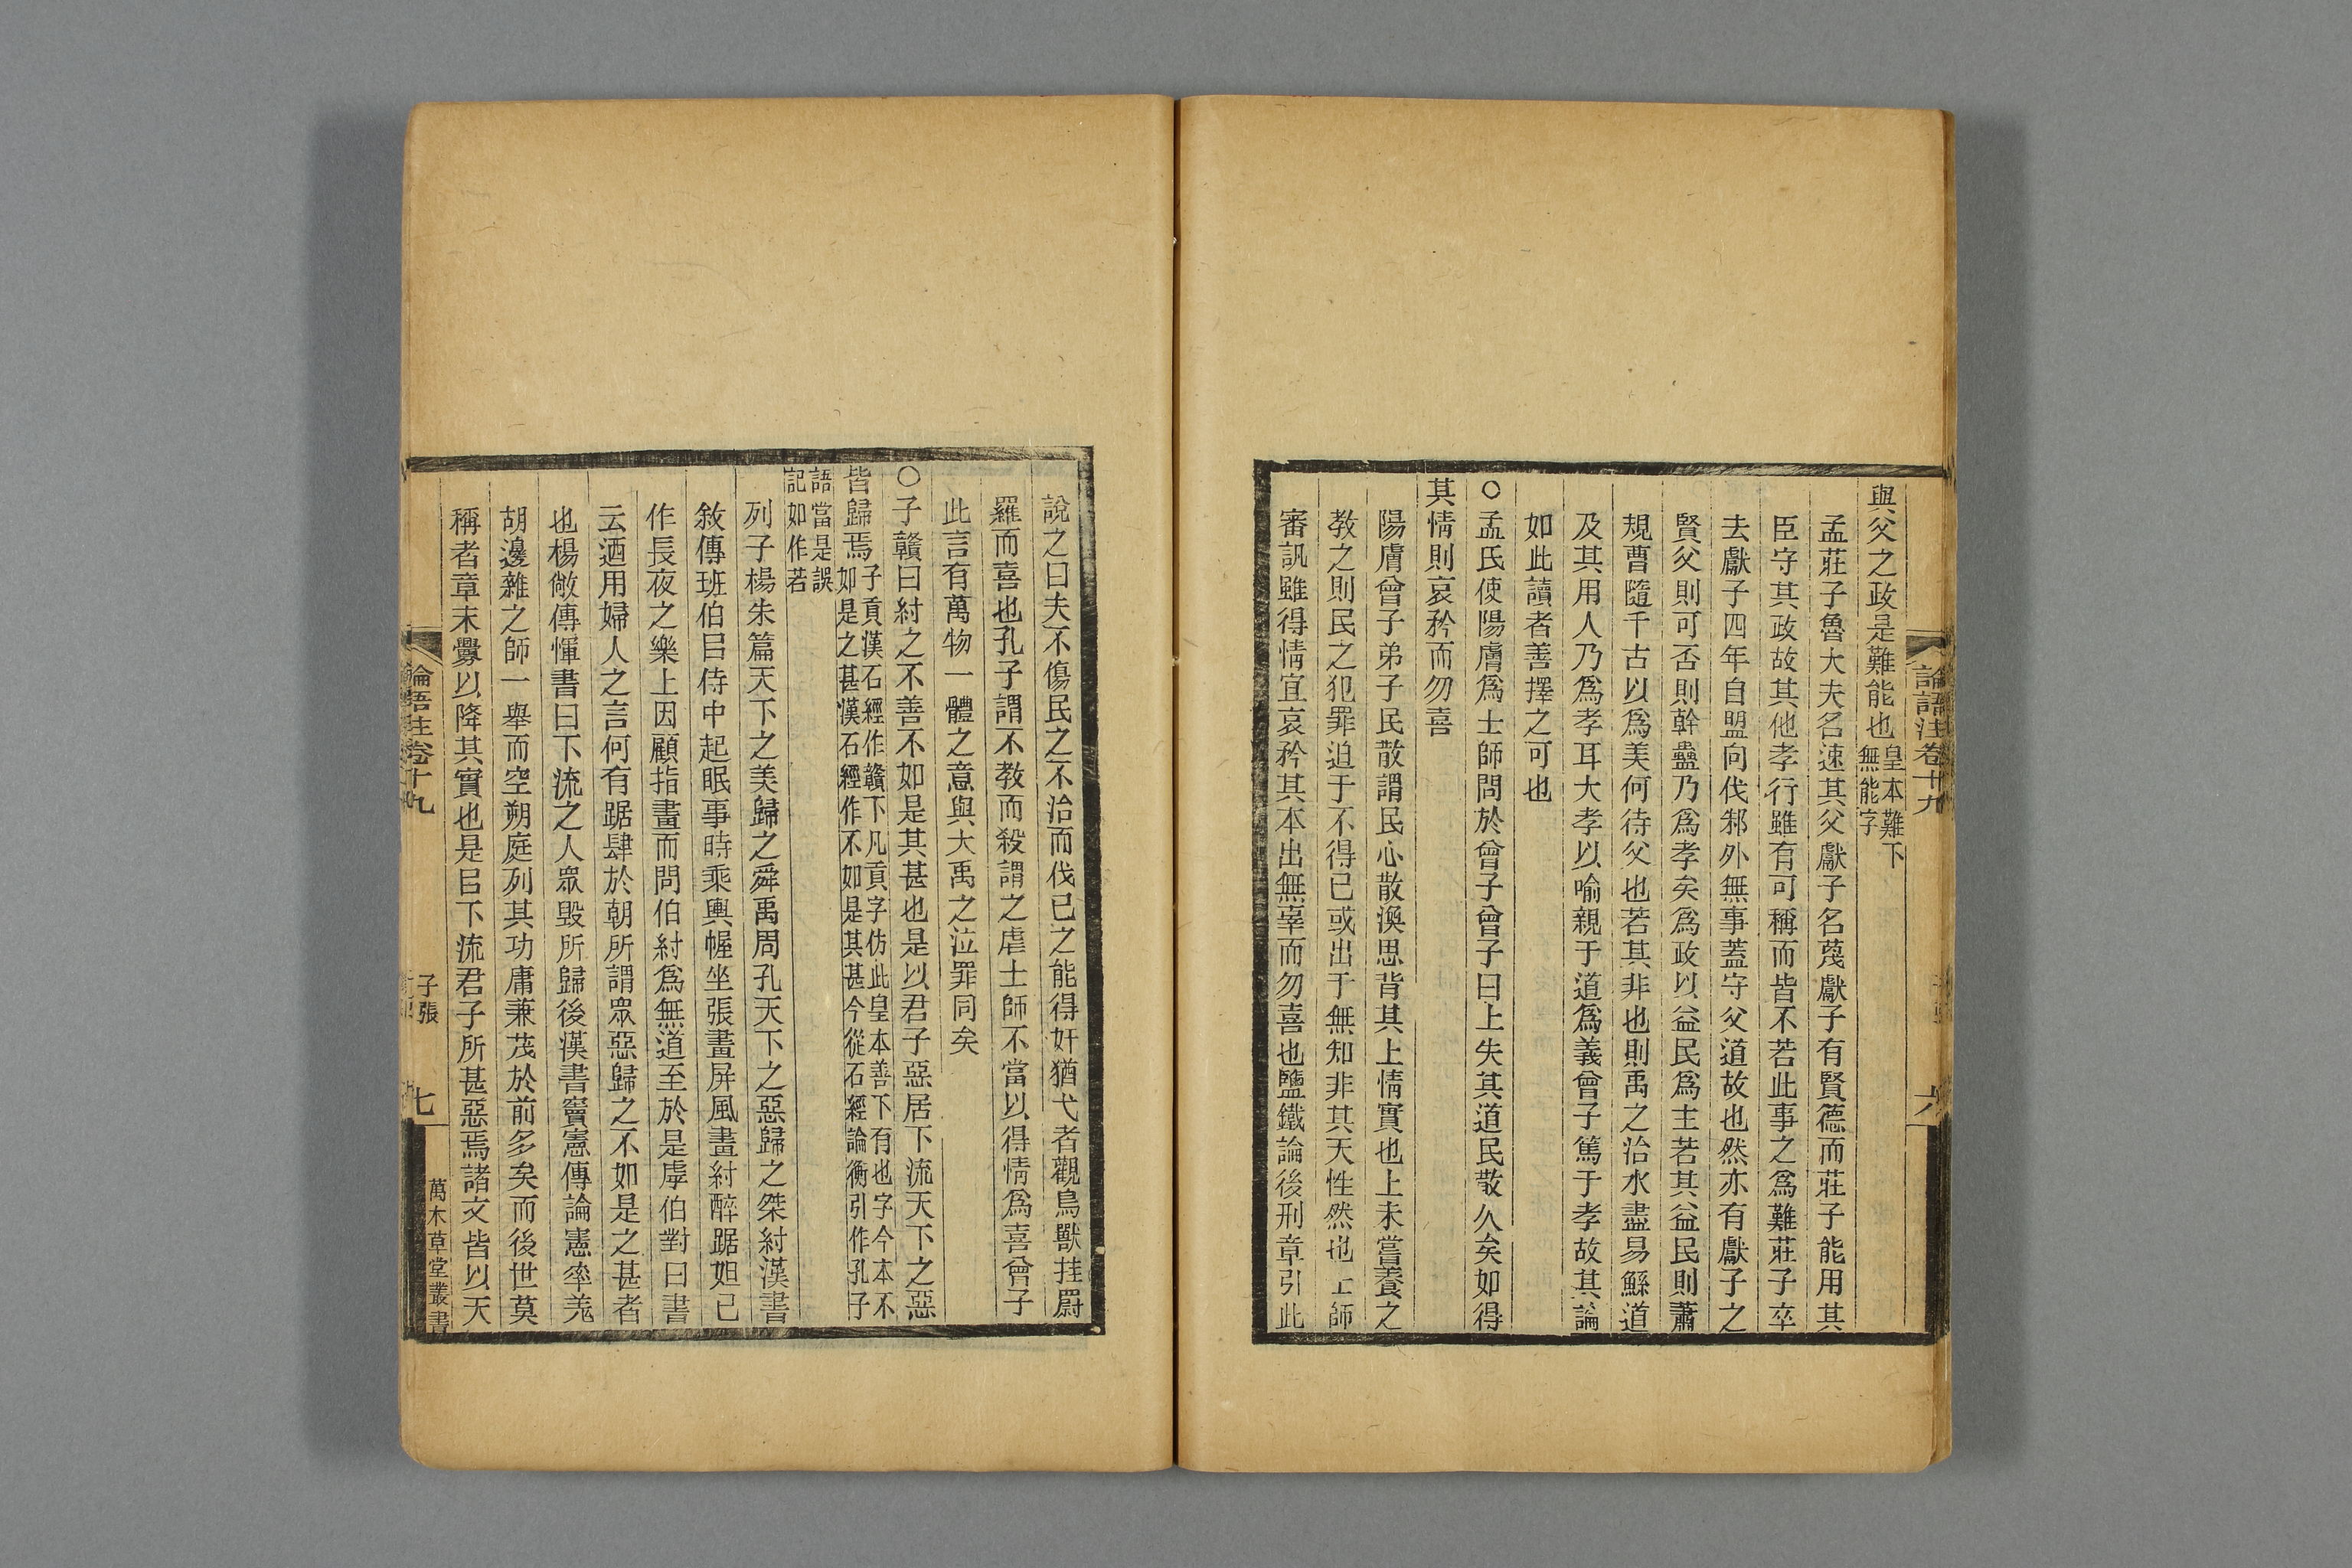 論語注卷十九
六
與父之政是難能也皇本難下
無能字
孟莊子魯大夫名速其父獻子名蔑獻子有賢德而莊子能用其
臣守其政故其他孝行雖有可稱而皆不若此事之爲難莊子卒
去獻子四年自盟向伐邾外無事蓋守父道故也然亦有獻子之
賢父則可否則幹蠱乃爲孝矣爲政以益民爲主若其益民則蕭
規曹隨千古以爲美何待父也若其非也則禹之治水盡易鯀道
及其用人乃爲孝耳大孝以喻親于道爲義曾子篤于孝故其論
如此讀者善擇之可也
○孟氏使陽膚爲士師問於曾子曾子曰上失其道民散久矣如得
其情則哀矜而勿喜
陽膚曾子弟子民散謂民心散渙思背其上情實也上未嘗養之
教之則民之犯罪迫于不得已或出于無知非其天性然也士師
審訊雖得情宜哀矜其本出無辜而勿喜也鹽鐵論後刑章引此
說之曰夫不傷民之不治而伐己之能得奸猶弋者觀鳥獸挂罻
羅而喜也孔子謂不教而殺謂之虐士師不當以得情爲喜曾子
此言有萬物一體之意與大禹之泣罪同矣
○子贛曰紂之不善不如是其甚也是以君子惡居下流天下之惡
皆歸焉子貢漢石經作贛下凡貢字仿此皇本善下有也字今本不
如是之甚漢石經作不如是其甚今從石經論衡引作孔子
語當是誤
記如作若
列子楊朱篇天下之美歸之舜禹周孔天下之惡歸之桀紂漢書
敘傳班伯㠯侍中起眠事時乘輿幄坐張畫屏風畫紂醉踞妲己
作長夜之樂上因顧指畫而問伯紂爲無道至於是虖伯對曰書
云迺用婦人之言何有踞肆於朝所謂眾惡歸之不如是之甚者
也楊敞傳惲書曰下流之人眾毀所歸後漢書竇憲傳論憲率羌
胡邊雜之師一舉而空朔庭列其功庸兼茂於前多矣而後世莫
稱者章末釁以降其實也是㠯下流君子所甚惡焉諸文皆以天
論語注卷十九
子張
七
萬木草堂叢書